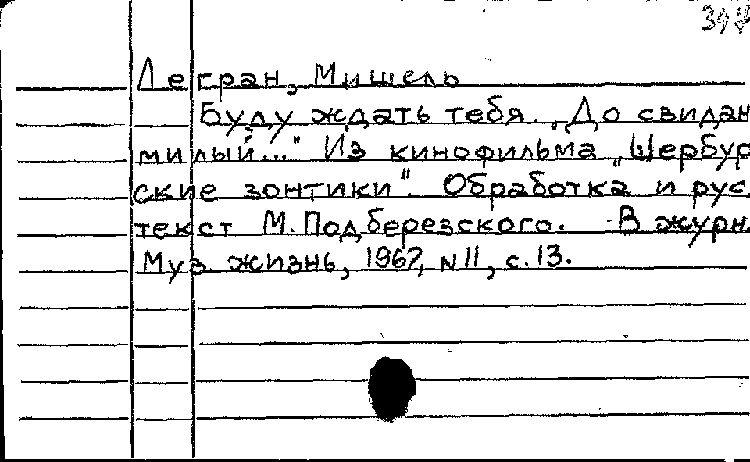 Легран, Мишель
Буду ждать тебя. „До свидан
милый..." Из кинофильма „Шербур
ские зонтики". Обработка и рус.
текст М. Подберезского. - В журн.
Муз жизнь, 1967, N 11, с. 13.